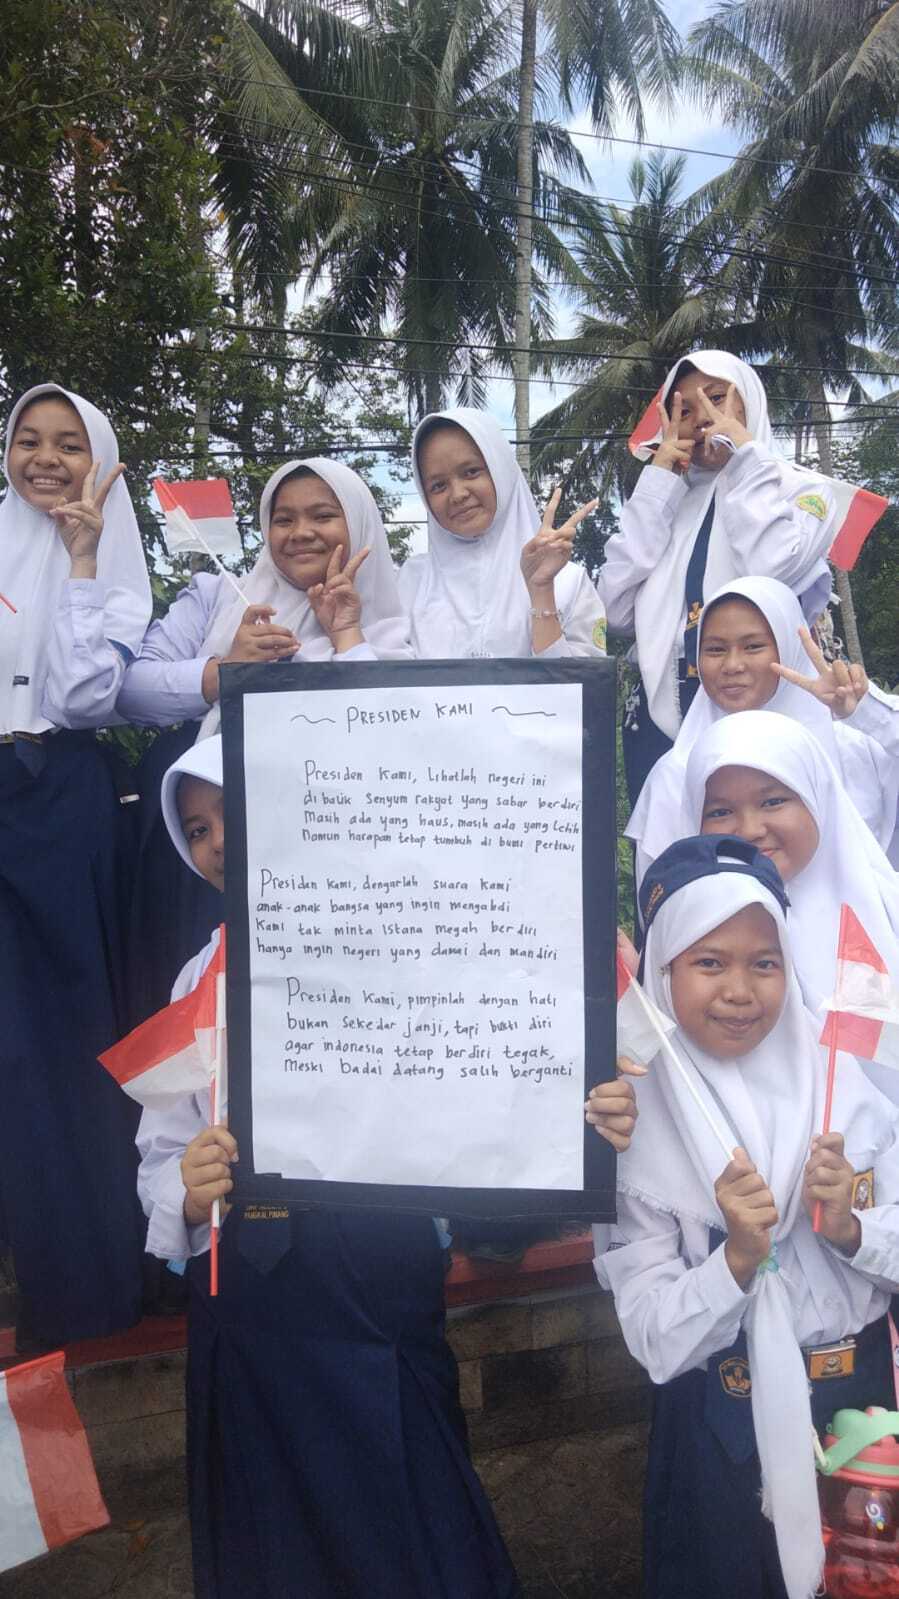 PRESIDEN KAMI
Presiden Kami, Lihatlah negeri ini
di balik senyum rakyat yang sabar berdiri
Masih ada yang haus, masih ada yang letih
Namun harapan tetap tumbuh di bumi pertiwi
Presiden Kami, dengarlah suara kami
anak-anak bangsa yang ingin mengabdi
Kami tak minta istana megah berdiri
hanya ingin negeri yang damai dan mandiri
Presiden Kami, pimpinlah dengan hati
bukan sekedar janji, tapi bukti diri
agar indonesia tetap berdiri tegak,
meski badai datang salih berganti
PANGKALPINANG